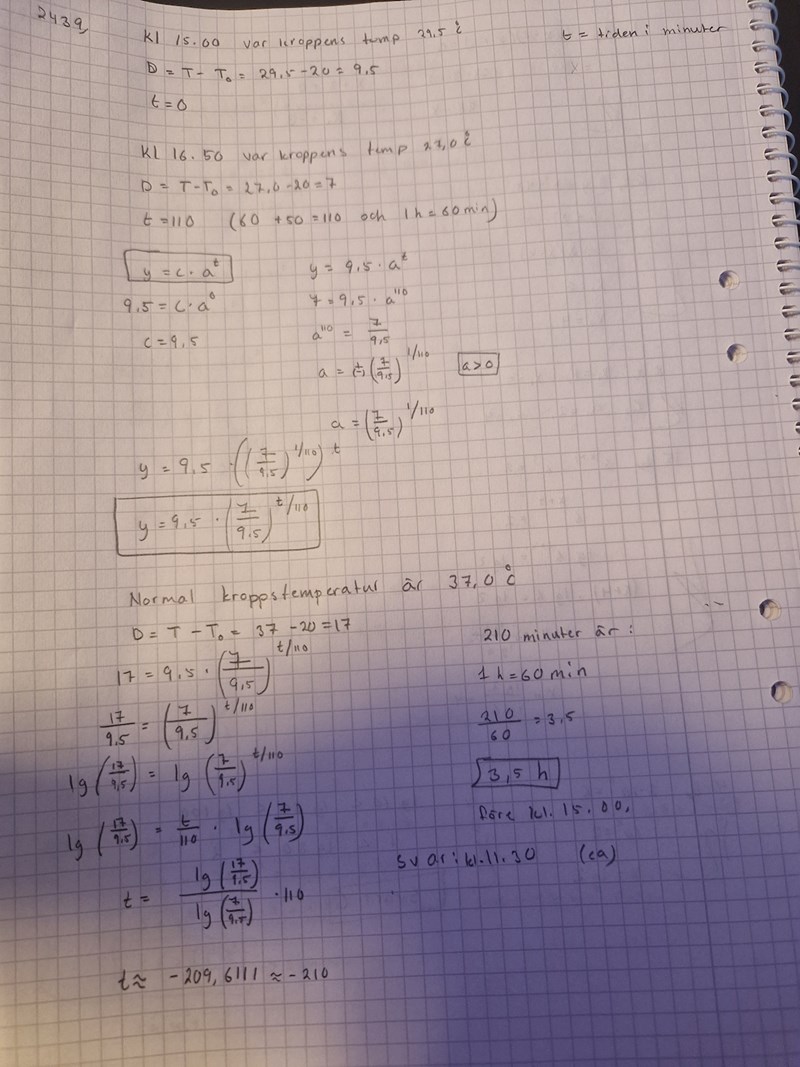 2439
kl 15.00 var kroppens temp 29,5 °C
t = tiden i minuter
D = T - T₀ = 29,5 - 20 = 9,5
t = 0
Kl 16.50 var kroppens temp 27,0 °C
D = T - T₀ = 27,0 - 20 = 7
t = 110 (60 + 50 = 110 och 1h = 60 min)
y = c · a^t
9,5 = c · a^0
c = 9,5
y = 9,5 · a^t
7 = 9,5 · a^110
a^110 = 7/9,5
a = (±) (7/9,5)^1/110 a > 0
a = (7/9,5)^1/110
y = 9,5 · ((7/9,5)^1/110)^t
y = 9,5 · (7/9,5)^t/110
Normal kroppstemperatur är 37,0 °C
D = T - T₀ = 37 - 20 = 17
17 = 9,5 · (7/9,5)^t/110
17/9,5 = (7/9,5)^t/110
lg (17/9,5) = lg (7/9,5)^t/110
lg (17/9,5) = t/110 · lg (7/9,5)
t = lg (17/9,5) / lg (7/9,5) · 110
t ≈ -209,6111 ≈ -210
210 minuter är:
1 h = 60 min
210/60 = 3,5
3,5 h
före kl. 15.00,
Svar: kl. 11.30 (ca)